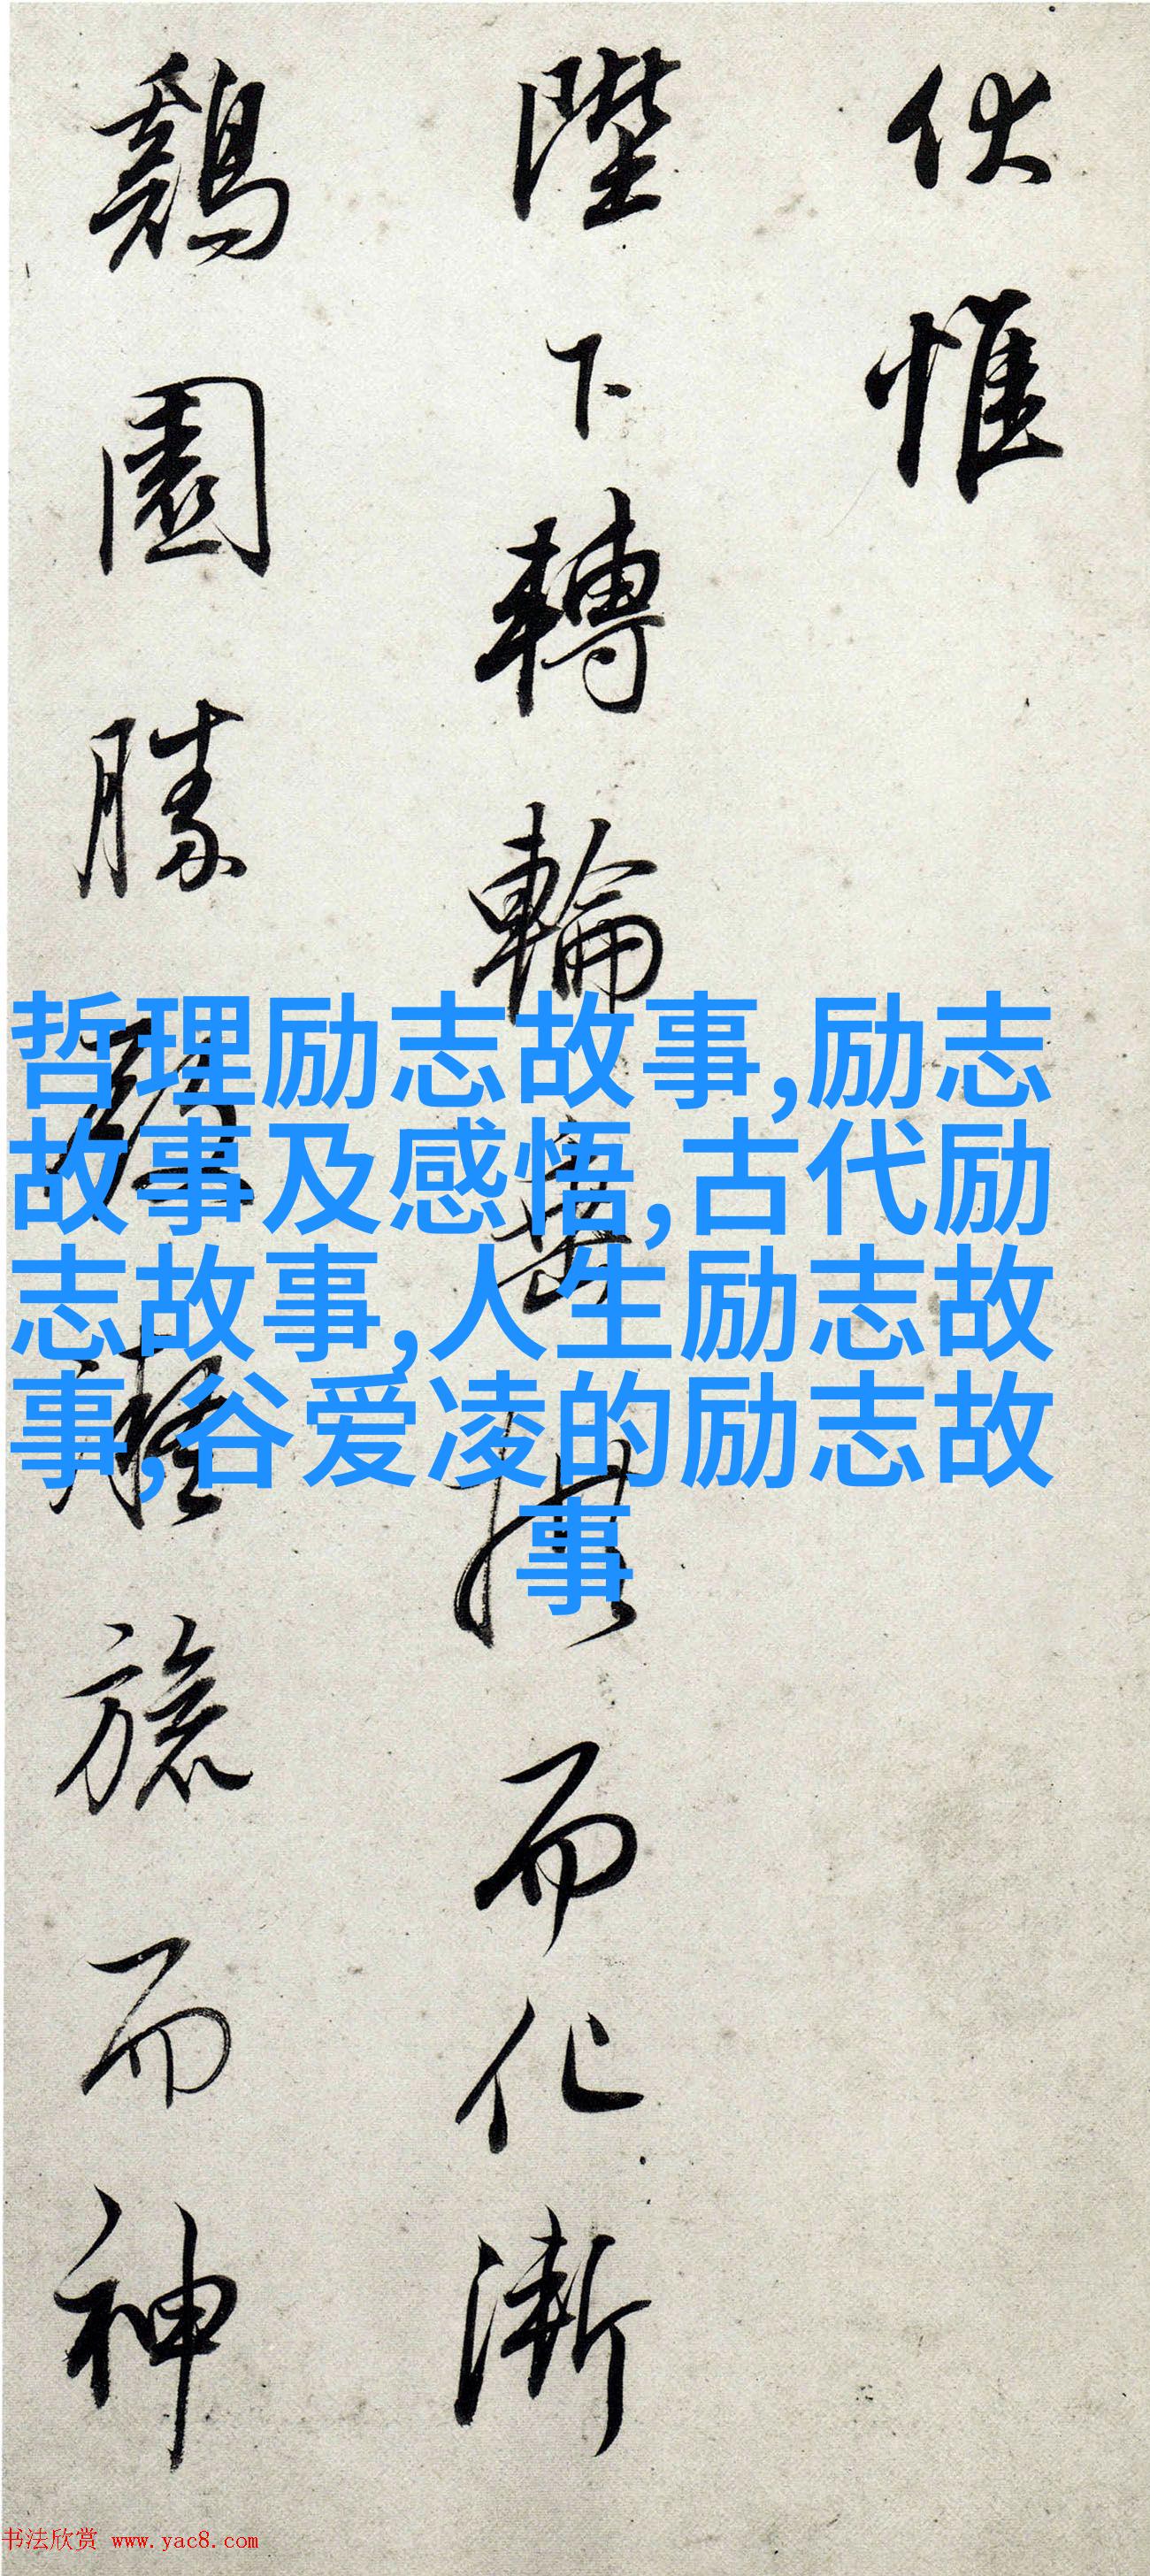 伏惟
陛下轉輪
而化漸
鷄園勝
旅而神
哲理励志故事,励志
故事及感悟,古代励
志故事,人生励志故
事,谷爱凌的励志故
事
书法欣赏 www.yac8.com